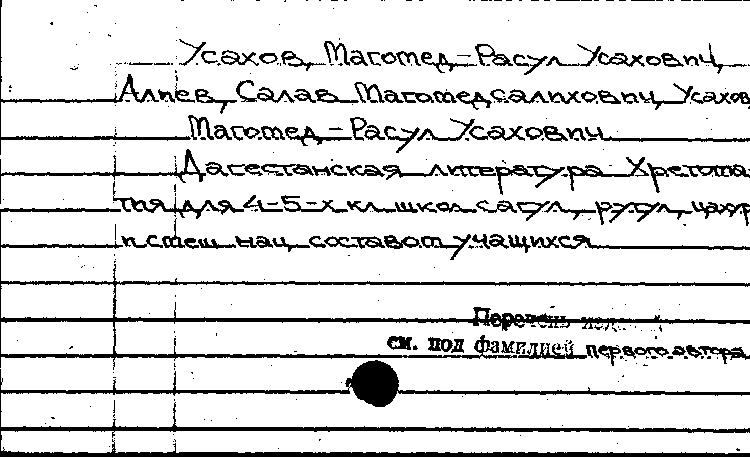 Усахов, Магомед-Расул Усахович,
Алиев, Салав Магомедсалихович, Усахов
Магомед-Расул Усахович
Дагестанская литература Хрестома-
тия для 4-5-х кл. школ с агул, рутул, цахур
и смеш нац составом учащихся
Перечень
см. под фамилией первого автора